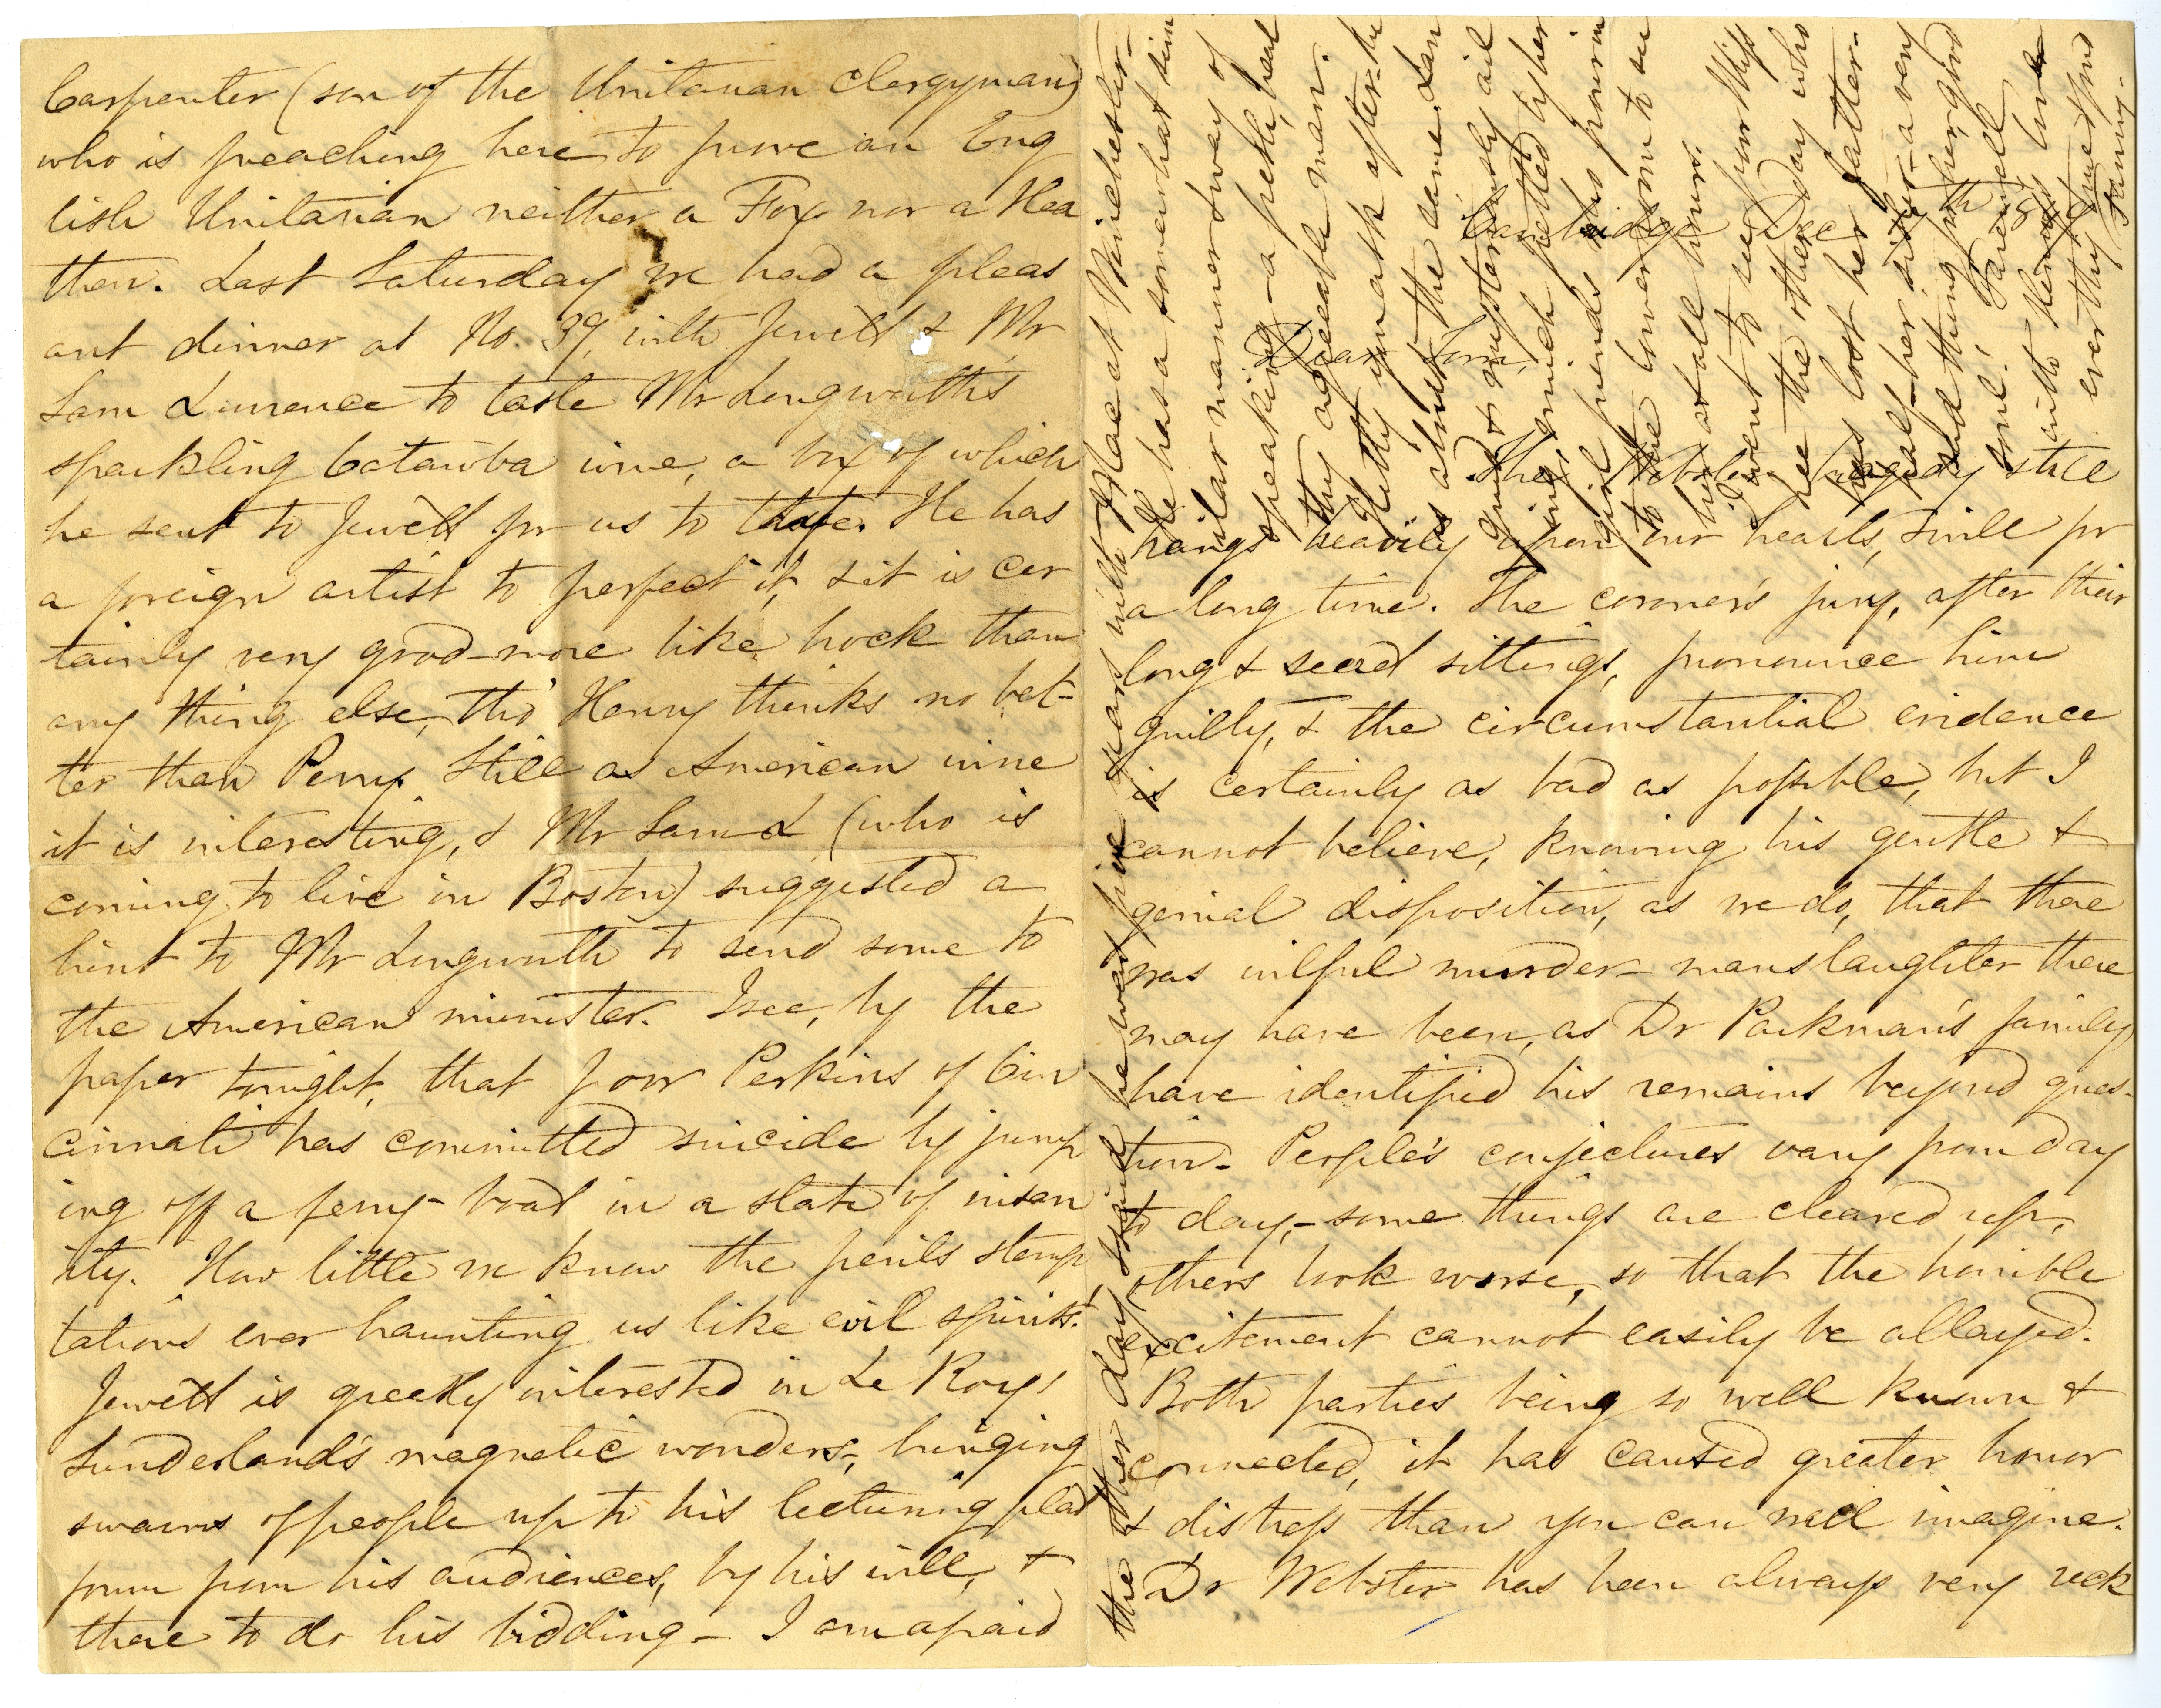 Carpenter (son of the Unitarian Clergyman)
who is preaching here to prove an Eng
lish Unitarian neither a Fox nor a Hea
then. Last Saturday we had a pleas
ant dinner at No. 39, with Jewett & Mr
Sam Lawrence to taste Mr Longworth's
sparkling Catawba wine, a box of which
he sent to Jewett for us to taste. He has
a foreign artist to perfect it, & it is cer
tainly very good—more like hock than
any thing else, tho' Henry thinks no bet-
ter than Perry. Still as American wine
it is interesting, & Mr Sam L (who is
coming to live in Boston) suggested a
hint to Mr Longworth to send some to
the American minister. I see, by the
paper tonight, that poor Perkins of Cin
cinnati has committed suicide by jump
ing off a ferry-boat in a state of insan
ity. How little we know the perils & temp
tations ever haunting us like evil spirits.
Jewett is greatly interested in Le Roy
Sunderland's magnetic wonders, bringing
swarms of people up to his lecturing plat
form from his audiences, by his will, &
there to do his bidding— I am afraid
Cambridge Dec
Dear Tom,
The Webster tragedy still
hangs heavily upon our hearts, & will for
a long time. The coroner's jury, after their
long & secret sittings, pronounce him
guilty, & the circumstantial evidence
is certainly as bad as possible, but I
cannot believe, knowing his gentle &
genial disposition, as we do, that there
was wilful murder— manslaughter there
may have been, as Dr Parkman's family
have identified his remains beyond ques-
tion— People's conjectures vary from day
to day,— some things are cleared up,
others look worse, so that the horrible
excitement cannot easily be allayed.
Both parties being so well known &
connected, it has caused greater horror
& distress than you can well imagine.
Dr Webster has been always very reck
the other day & said he was five years with Mac at Winchester—
He has a somewhat sim
ilar manner & way of
speaking— a fresh, heal
thy agreeable man.
Hetty you ask after— she
is almost the same. Lan
guid & mysteriously ail
ing, & much petted by her
girl friends who pour in
to the lower room to su
his at all hours.
I went to see poor Miss
lee the other day who
has lost her father—
half her sister—a very
sad thing for her, good
soul. Farewell
with
ever thy
Fanny.